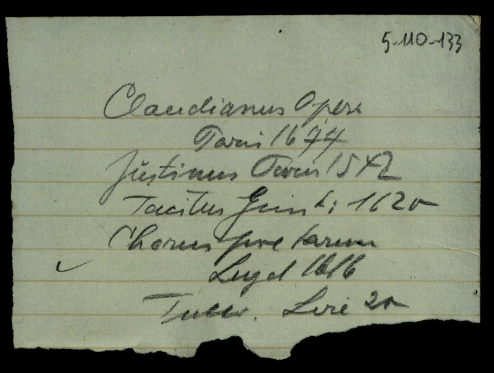 5-110-133
Claudianus Opera
Paris 1677
Justinus Paris
Tacitus 1620
Chorus poetarum
Lugd 1616
Lire 20